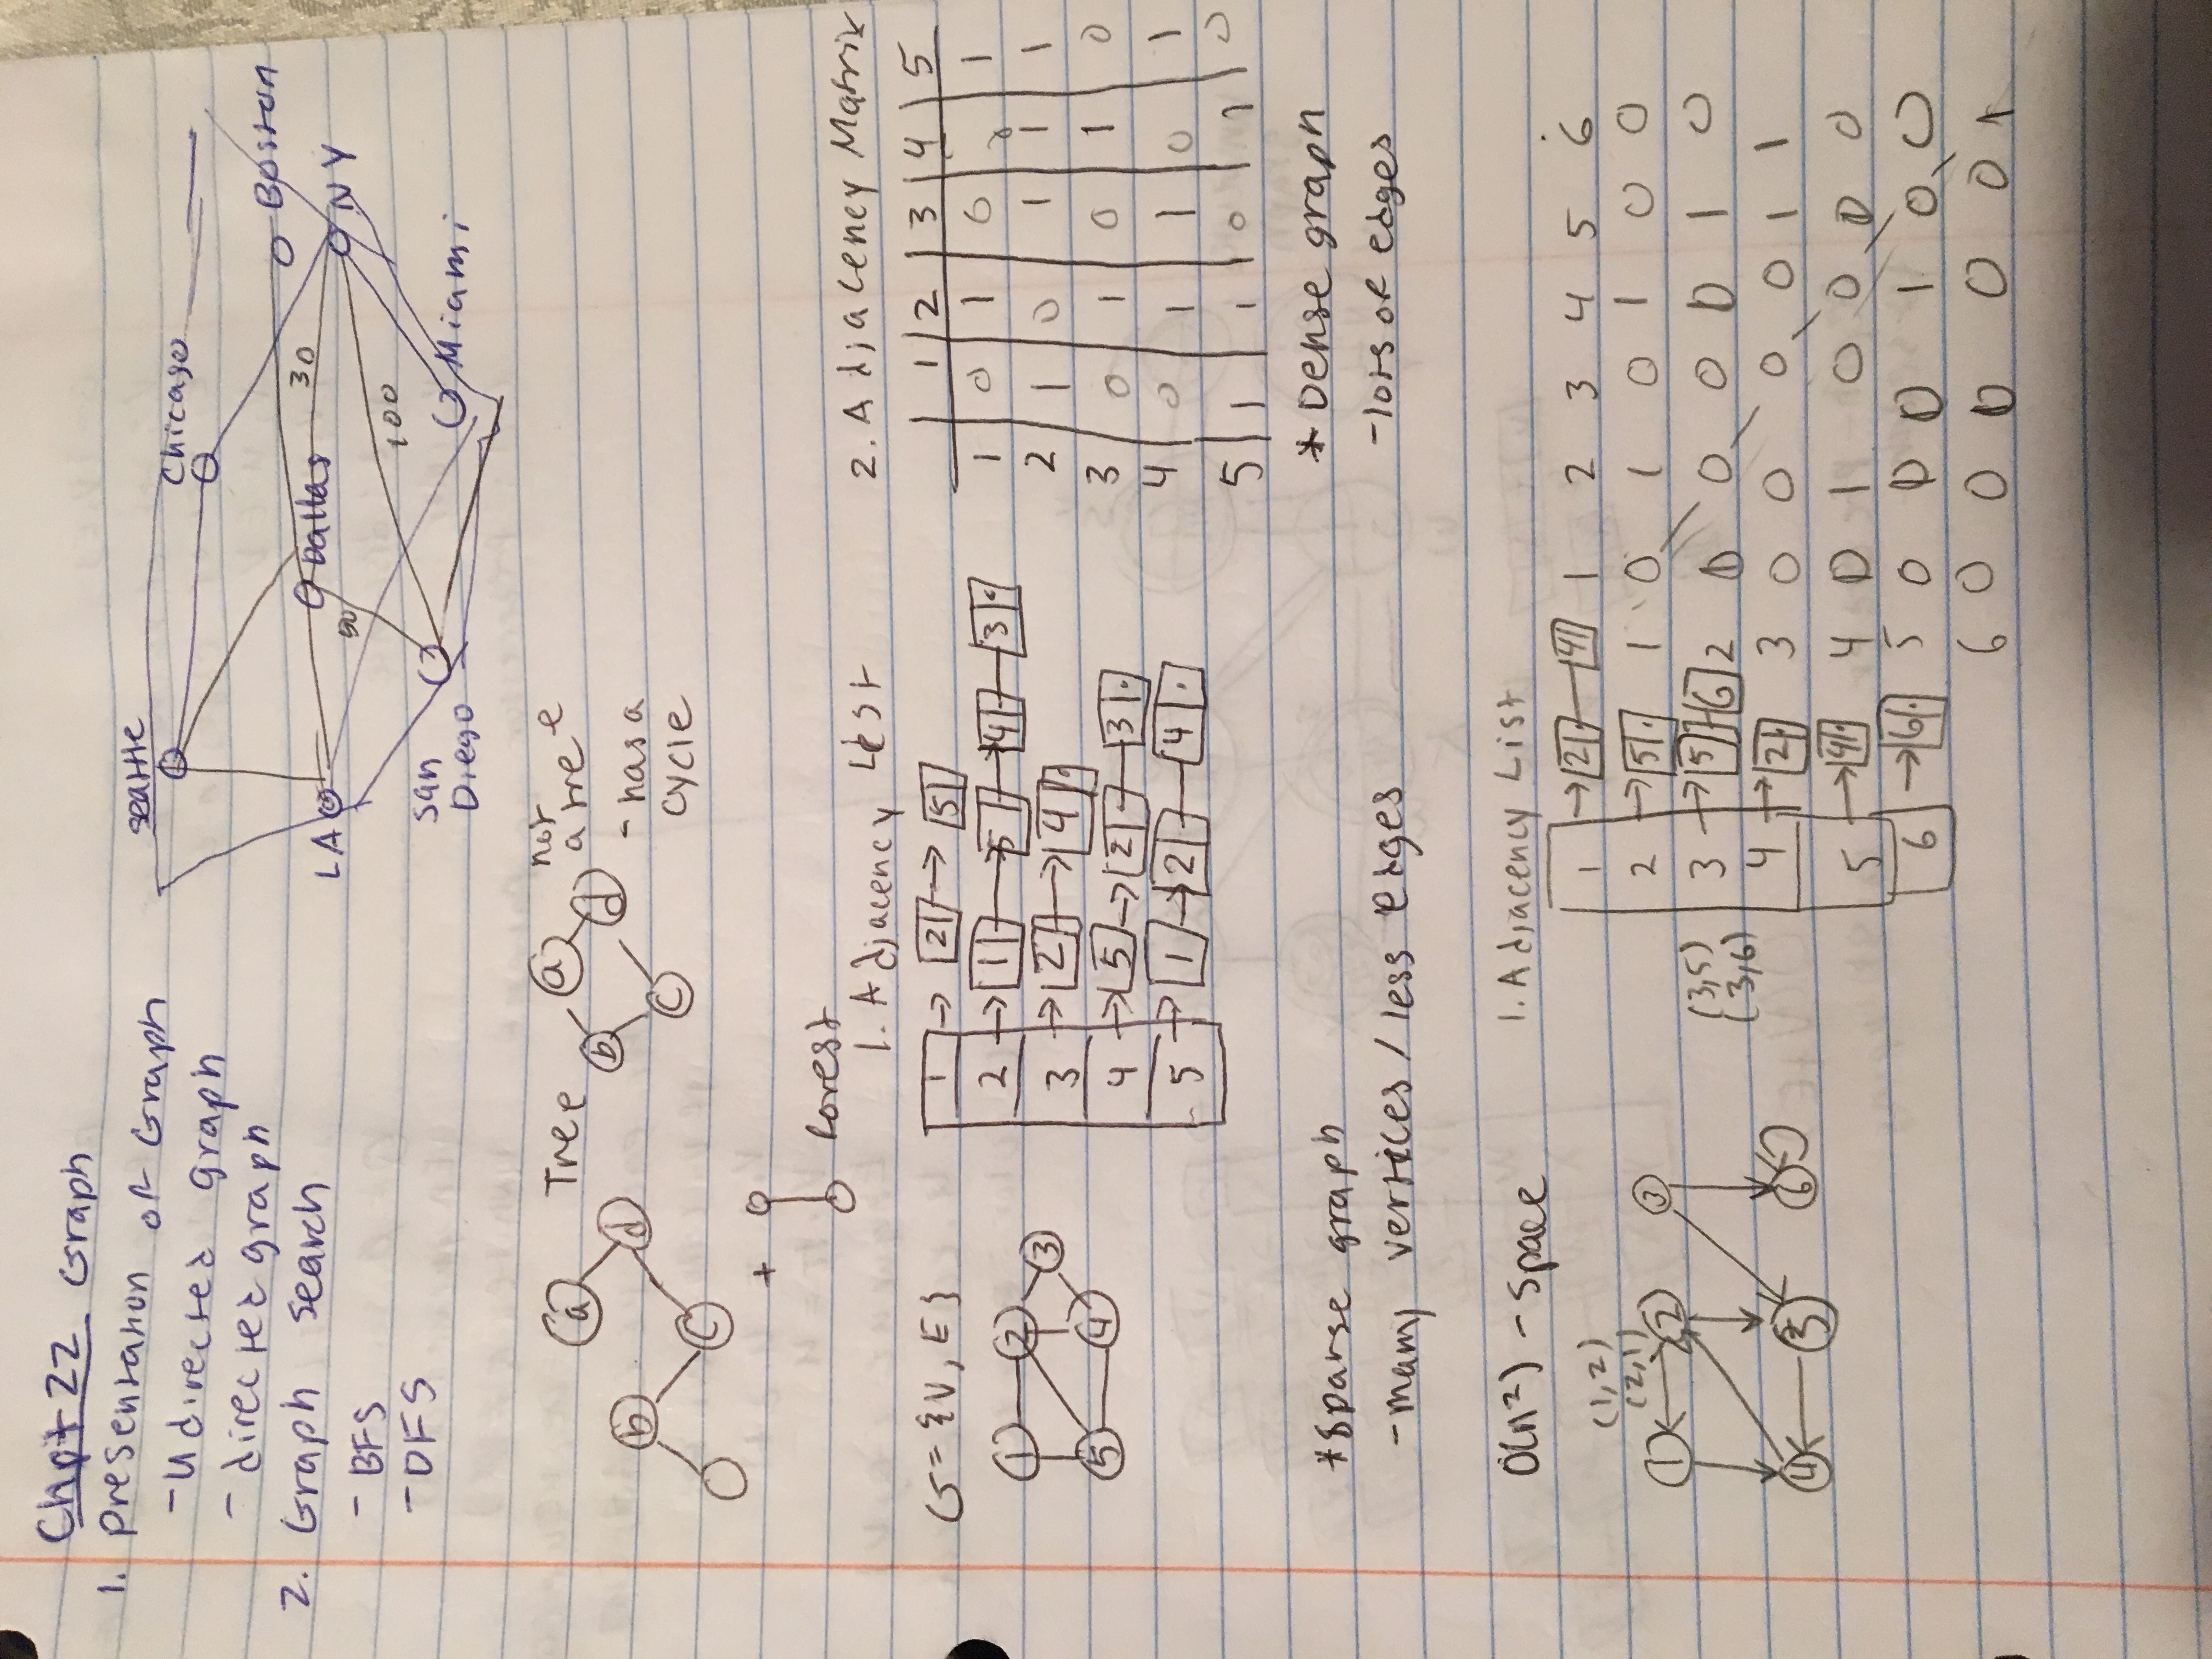 Chpt 22 Graph
1. Presentation of Graph
- Udirected graph
- directed graph
2. Graph search
- BFS
- DFS
seattle
Chicago
Boston
LA
Dallas
30
NY
50
100
San
Diego
Miami
a Tree
b d
c
a not
a tree
b d
- has a
c cycle
+
forest
1. Adjacency List
2. Adjacency Matrix
G = {V, E}
1 2 3
5 4
1 → 2 → 5
2 → 1 → 5 → 4 — 3
3 → 2 → 4
4 → 5 → 2 — 3
5 → 1 → 2 — 4
1 2 3 4 5
1 0 1 0 0 1
2 1 0 1 1 1
3 0 1 0 1 0
4 0 1 1 0 1
5 1 1 0 1 0
* Sparse graph
- many vertices / less edges
* Dense graph
- lots of edges
O(n²) - Space
1. Adjacency List
(1,2)
(2,1)
1 2 3
4 5 6
(3,5)
(3,6)
1 → 2 — 4
2 → 5
3 → 5 6
4 → 2
5 → 4
6 → 6
1 2 3 4 5 6
1 0 1 0 1 0 0
2 0 0 0 0 1 0
3 0 0 0 0 1 1
4 0 1 0 0 0 0
5 0 0 0 1 0 0
6 0 0 0 0 0 1